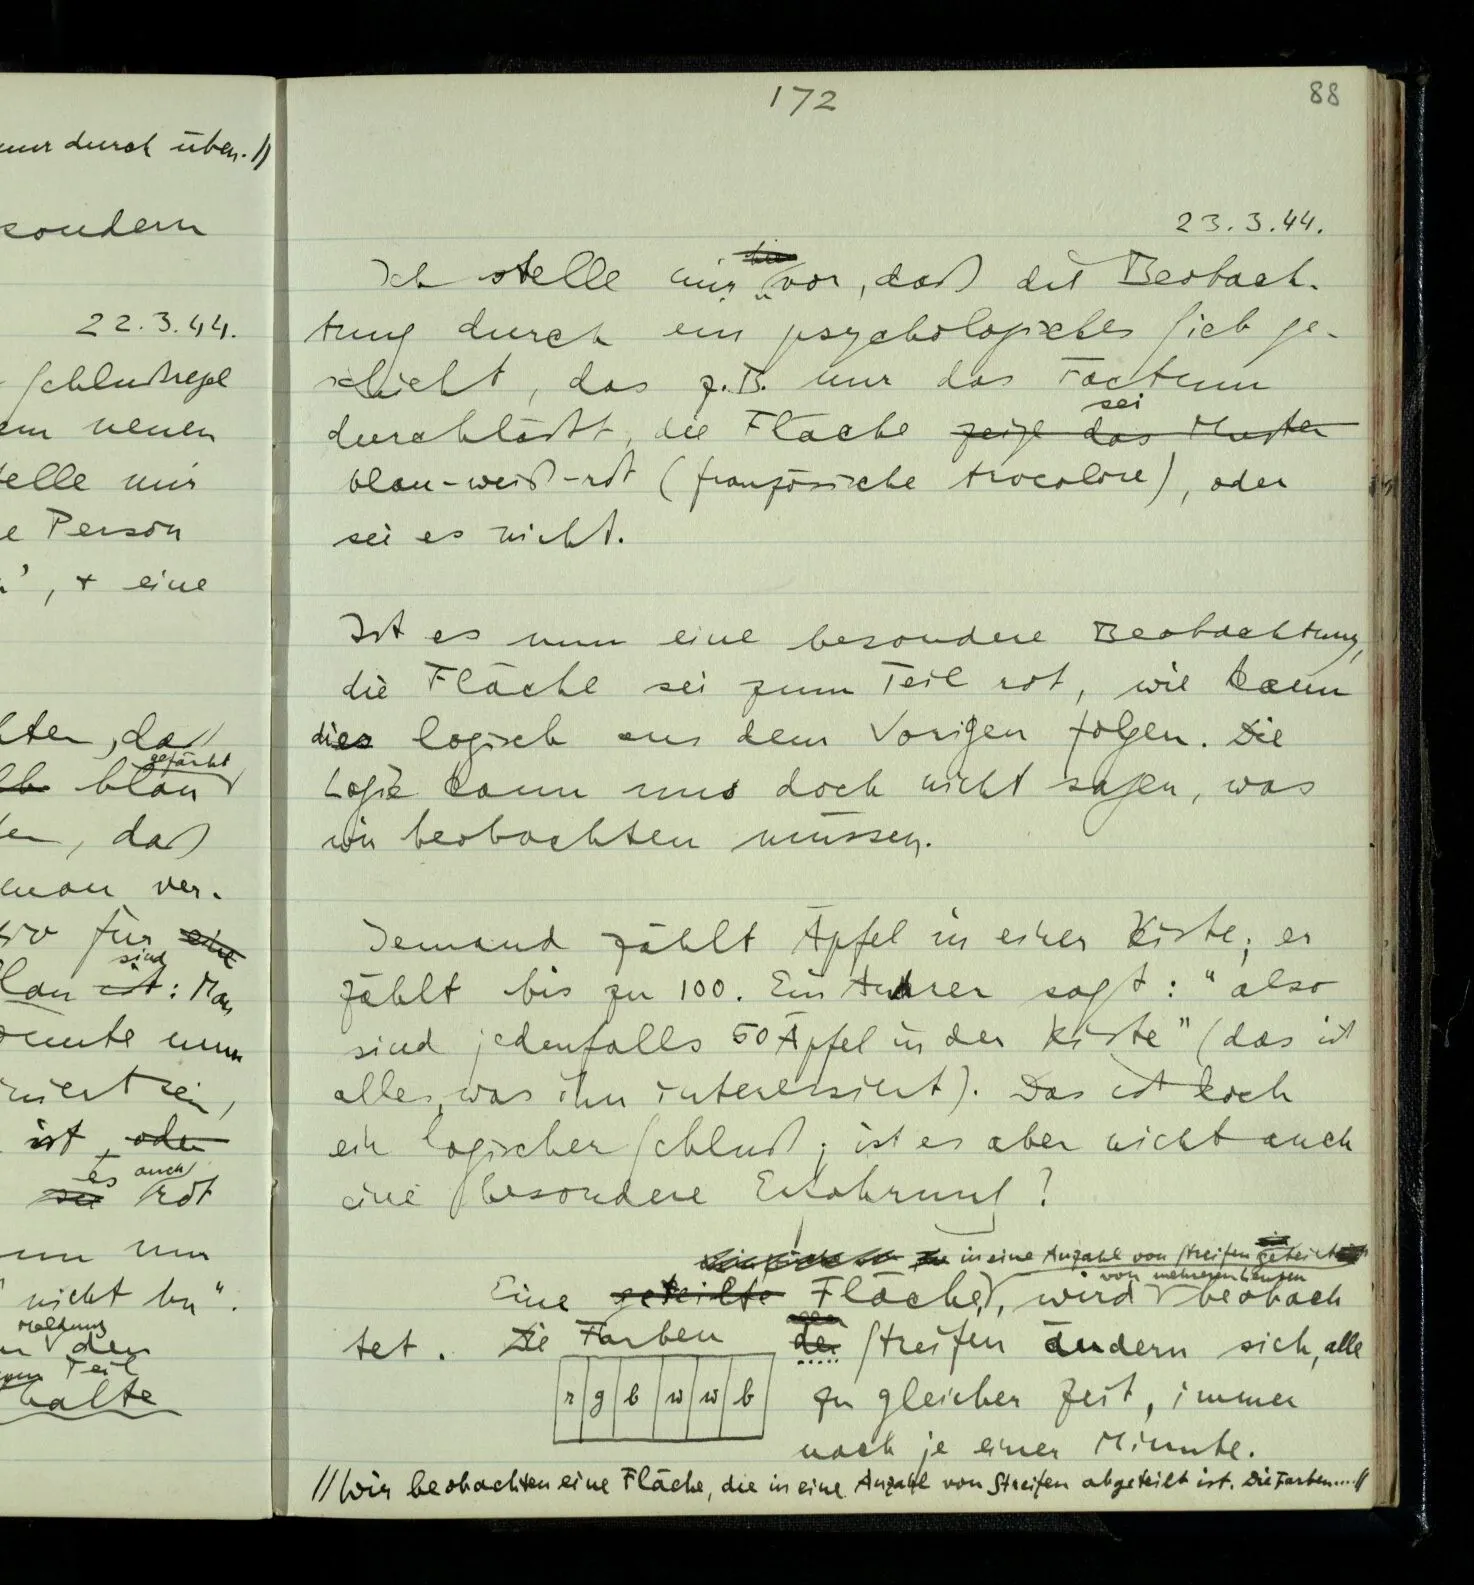 nur durch üben.//
sondern
22.3.44.
Schlußregel
neuen
stelle mir
Person
, + eine
, daß
gefärbt
blau
, daß
man ver-
für eine
sind
blau ist: Man
konnte nun
sein,
ist, oder
es auch
sei rot
nicht hn".
Meldung
den
Teil
halte
172
88
23.3.44.
Ich stelle mir vor, daß die Beobach-
tung durch ein psychologisches Sieb ge-
schieht, das z.B. nur das Factum
sei
durchläßt, die Fläche zeige das Muster
blau-weiß-rot (französische trocolore), oder
sei es nicht.
Ist es nun eine besondere Beobachtung,
die Fläche sei zum Teil rot, wie kann
dies logisch aus dem Vorigen folgen. Die
Logik kann uns doch nicht sagen, was
wir beobachten müssen.
Jemand zählt Äpfel in einer Kiste; er
zählt bis zu 100. Ein Andrer sagt: "also
sind jedenfalls 50 Äpfel in der Kiste" (das ist
alles, was ihn interessiert). Das ist doch
ein logischer Schluß; ist es aber nicht auch
eine besondere Erfahrung?
in eine Anzahl von Streifen geteilt
von mehreren Leuten
Eine geteilte Fläche, wird beobach
tet. Die Farben der Streifen ändern sich, alle
r g b w w b zu gleicher Zeit, immer
nach je einer Minute.
//Wir beobachten eine Fläche, die in eine Anzahl von Streifen abgeteilt ist. Die Farben....//